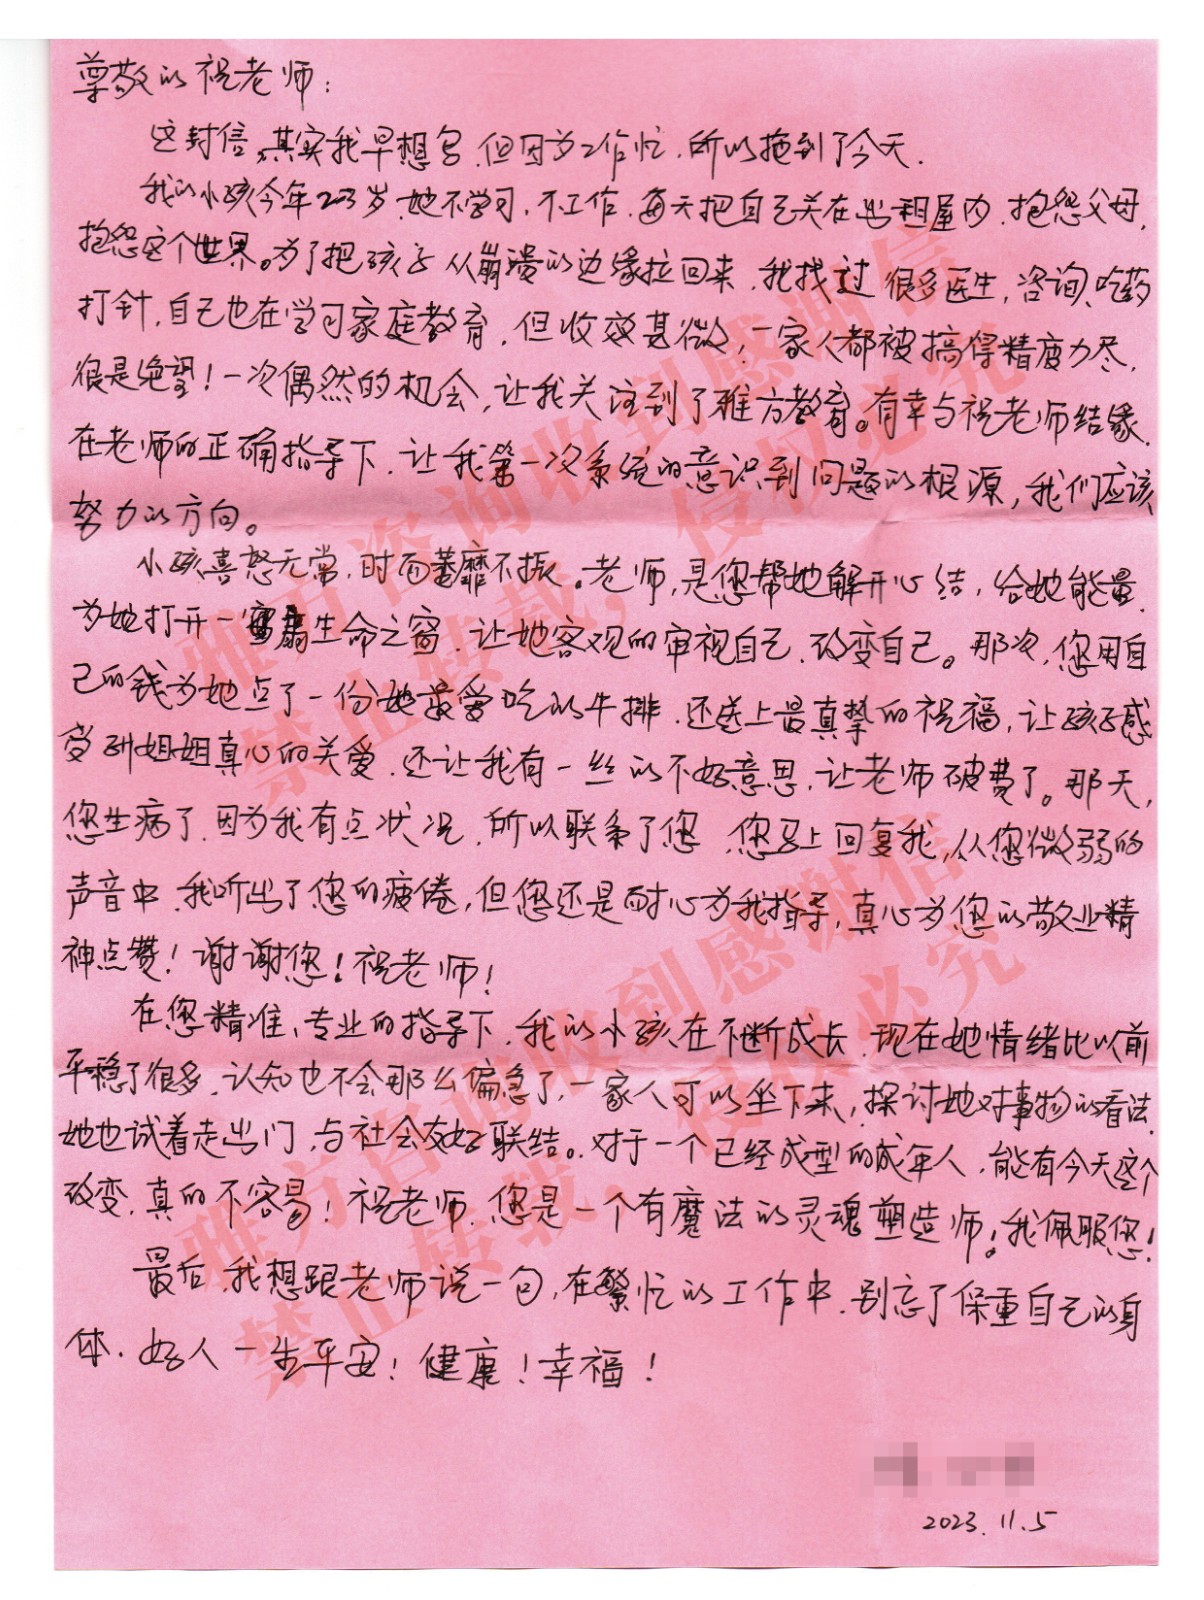 尊敬的祝老师:
这封信,其实我早想写,但因为工作忙,所以拖到了今天.
我的小孩今年23岁,她不学习,不工作,每天把自己关在出租屋内,抱怨父母,
抱怨这个世界。为了把孩子从崩溃的边缘拉回来,我找过很多医生,咨询、吃药
打针,自己也在学习家庭教育,但收效甚微,一家人都被搞得精疲力尽,
很是绝望!一次偶然的机会,让我关注到了雅方教育。有幸与祝老师结缘,
在老师的正确指导下,让我第一次系统的意识到问题的根源,我们应该
努力的方向。
小孩喜怒无常,时而萎靡不振。老师,是您帮她解开心结,给她能量,
为她打开一扇生命之窗,让她客观的审视自己,改变自己。那次,您用自
己的钱为她点了一份她最爱吃的牛排,还送上最真挚的祝福,让孩子感
受到姐姐真心的关爱,还让我有一丝的不好意思,让老师破费了。那天,
您生病了,因为我有点状况,所以联系了您,您马上回复我,从您微弱的
声音中,我听出了您的疲倦,但您还是耐心为我指导,真心为您的敬业精
神点赞!谢谢您!祝老师!
在您精准、专业的指导下,我的小孩在不断成长,现在她情绪比以前
平稳了很多,认知也不会那么偏急了,一家人可以坐下来,探讨她对事物的看法,
她也试着走出门,与社会友好联结。对于一个已经成型的成年人,能有今天这个
改变,真的不容易!祝老师,您是一个有魔法的灵魂塑造师!我佩服您!
最后,我想跟老师说一句,在繁忙的工作中,别忘了保重自己的身
体.好人一生平安!健康!幸福!
2023.11.5
雅方咨询收到感谢信
禁止转载,侵权必究
雅方咨询收到感谢信
禁止转载,侵权必究